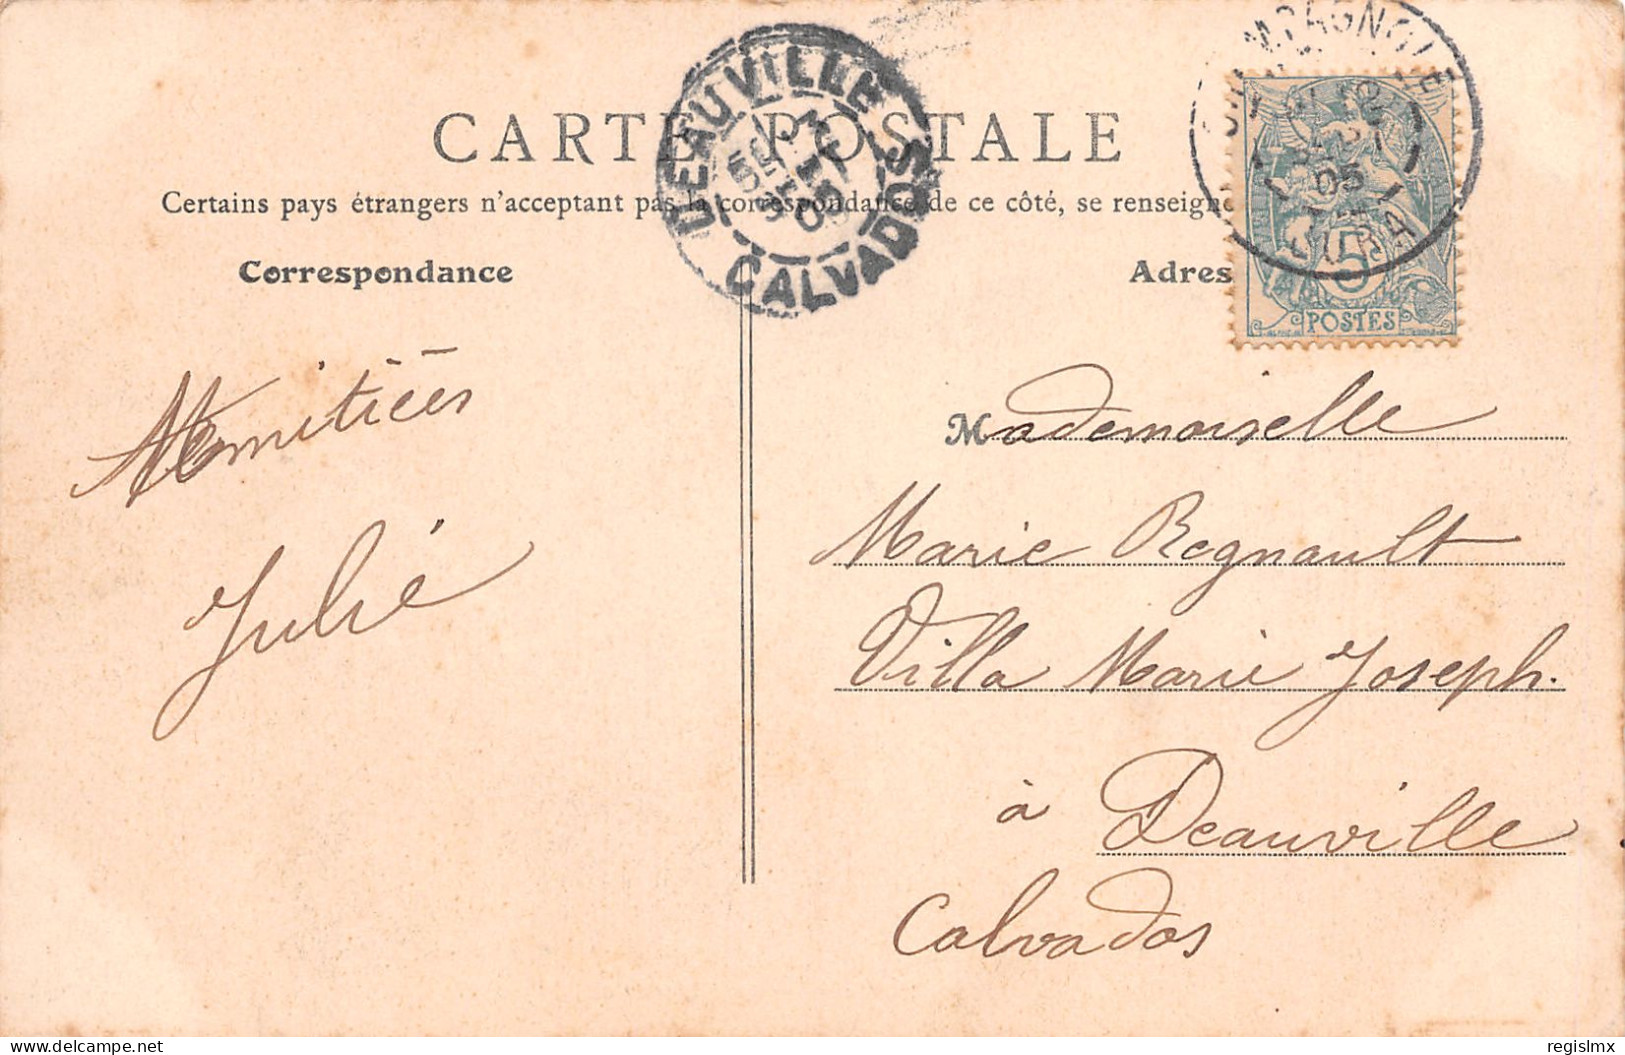 CARTE POSTALE
Certains pays étrangers n'acceptant pas la correspondance de ce côté, se renseigne
Correspondance
Adres
DEAUVILLE
CALVADOS
05
JURA
05
5
POSTES
Amitiées
Julie
Mademoiselle
Marie Regnault
Villa Marie Joseph.
à Deauville
Calvados
regislmx